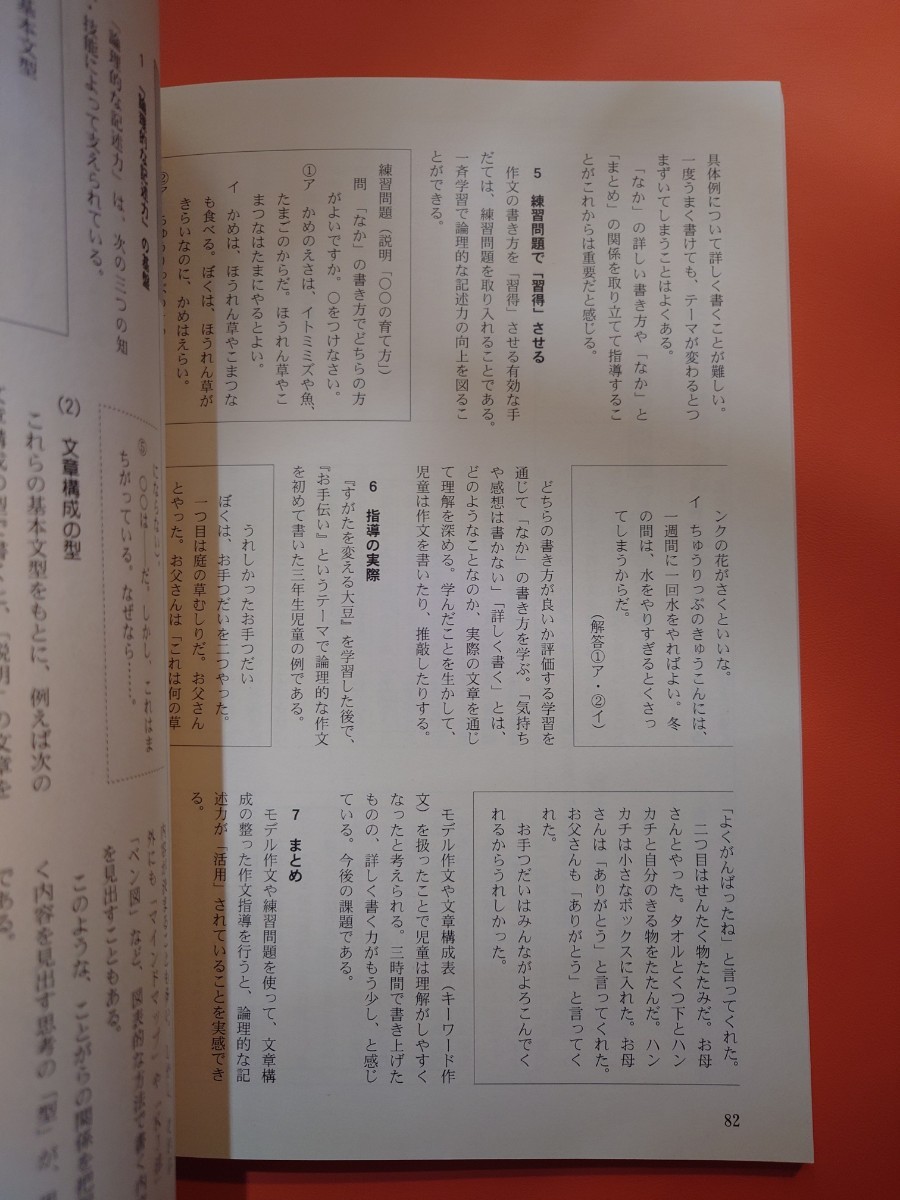 具体例について詳しく書くことが難しい。
一度うまく書けても、テーマが変わるとつ
まずいてしまうことはよくある。
「なか」の詳しい書き方や「なか」と
「まとめ」の関係を取り立てて指導するこ
とがこれからは重要だと感じる。
5 練習問題で「習得」させる
作文の書き方を「習得」させる有効な手
だては、練習問題を取り入れることである。
一斉学習で論理的な記述力の向上を図るこ
とができる。
練習問題（説明「〇〇の育て方」）
問 「なか」の書き方でどちらの方
がよいですか。○をつけなさい。
①ア かめのえさは、イトミミズや魚、
たまごのからだ。ほうれん草やこ
まつなはたまにやるとよい。
イ かめは、ほうれん草やこまつな
も食べる。ぼくは、ほうれん草が
きらいなのに、かめはえらい。
②ア
ンクの花がさくといいな。
イ ちゅうりっぷのきゅうこんには、
一週間に一回水をやればよい。冬
の間は、水をやりすぎるとくさっ
てしまうからだ。
（解答①ア・②イ）
どちらの書き方が良いか評価する学習を
通じて「なか」の書き方を学ぶ。「気持ち
や感想は書かない」「詳しく書く」とは、
どのようなことなのか、実際の文章を通じ
て理解を深める。学んだことを生かして、
児童は作文を書いたり、推敲したりする。
6 指導の実際
『すがたを変える大豆』を学習した後で、
『お手伝い』というテーマで論理的な作文
を初めて書いた三年生児童の例である。
うれしかったお手つだい
ぼくは、お手つだいを二つやった。
一つ目は庭の草むしりだ。お父さん
とやった。お父さんは「これは何の草
「よくがんばったね」と言ってくれた。
二つ目はせんたく物たたみだ。お母
さんとやった。タオルとくつ下とハン
カチと自分のきる物をたたんだ。ハン
カチは小さなボックスに入れた。お母
さんは「ありがとう」と言ってくれた。
お父さんも「ありがとう」と言ってく
れた。
お手つだいはみんながよろこんでく
れるからうれしかった。
モデル作文や文章構成表（キーワード作
文）を扱ったことで児童は理解がしやすく
なったと考えられる。三時間で書き上げた
ものの、詳しく書く力がもう少し、と感じ
ている。今後の課題である。
7 まとめ
モデル作文や練習問題を使って、文章構
成の整った作文指導を行うと、論理的な記
述力が「活用」されていることを実感でき
る。
82
1 「論理的な記述力」の基盤
「論理的な記述力」は、次の三つの知
・技能によって支えられている。
基本文型
⑤ 〇〇は……だ。しかし、これはま
ちがっている。なぜなら……。
(2) 文章構成の型
これらの基本文型をもとに、例えば次の
「ベン図」など、図表的な方法で書く内
を見出すこともある。
このような、ことがらの関係を把
く内容を見出す思考の「型」が、
である。